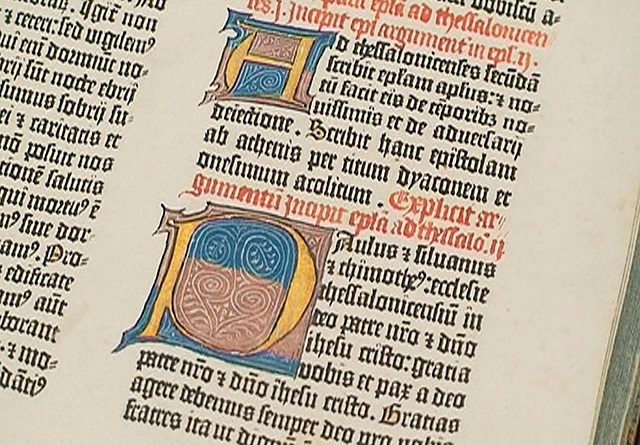 Igit̄ non
⁊ ceteri: sed vigilemꝰ
ui eni dormiūt no-
brij sūt nocte ebrij
sumus sobrij su-
ei ⁊ caritatis et
nō posuit nos
cionē salutis
qui mortuꝰ ē
nꝰ siue dor-
amꝰ. Pro-
edificate
amꝰ aūt
borant
⁊ mo-
vobiscū a-
ep̄la ad thessalonicen
ses. i. incipit ep̄l argument in ep̄l. ij.
Ad thessalonicenses secūdā
scribit ep̄lam ap̄lus: ⁊ no-
tū facit eis de tēporibꝫ no-
uissimis et de aduersarij
deiectione. Scribit hanc epistolam
ab athenis per titum dyaconem et
onesimum acolitum. Explicit ar-
gumentū incipit ep̄la ad thessalo. ij.
Paulus ⁊ siluanus
⁊ thimotheꝰ: ecclesie
thessalonicensiū in
deo patre nr̄o ⁊ dn̄o
ihesu cristo: gracia
vobis et pax a deo
patre nr̄o ⁊ dn̄o ihesu cristo. Gracias
agere debemus semper deo pro
fratres ita ut